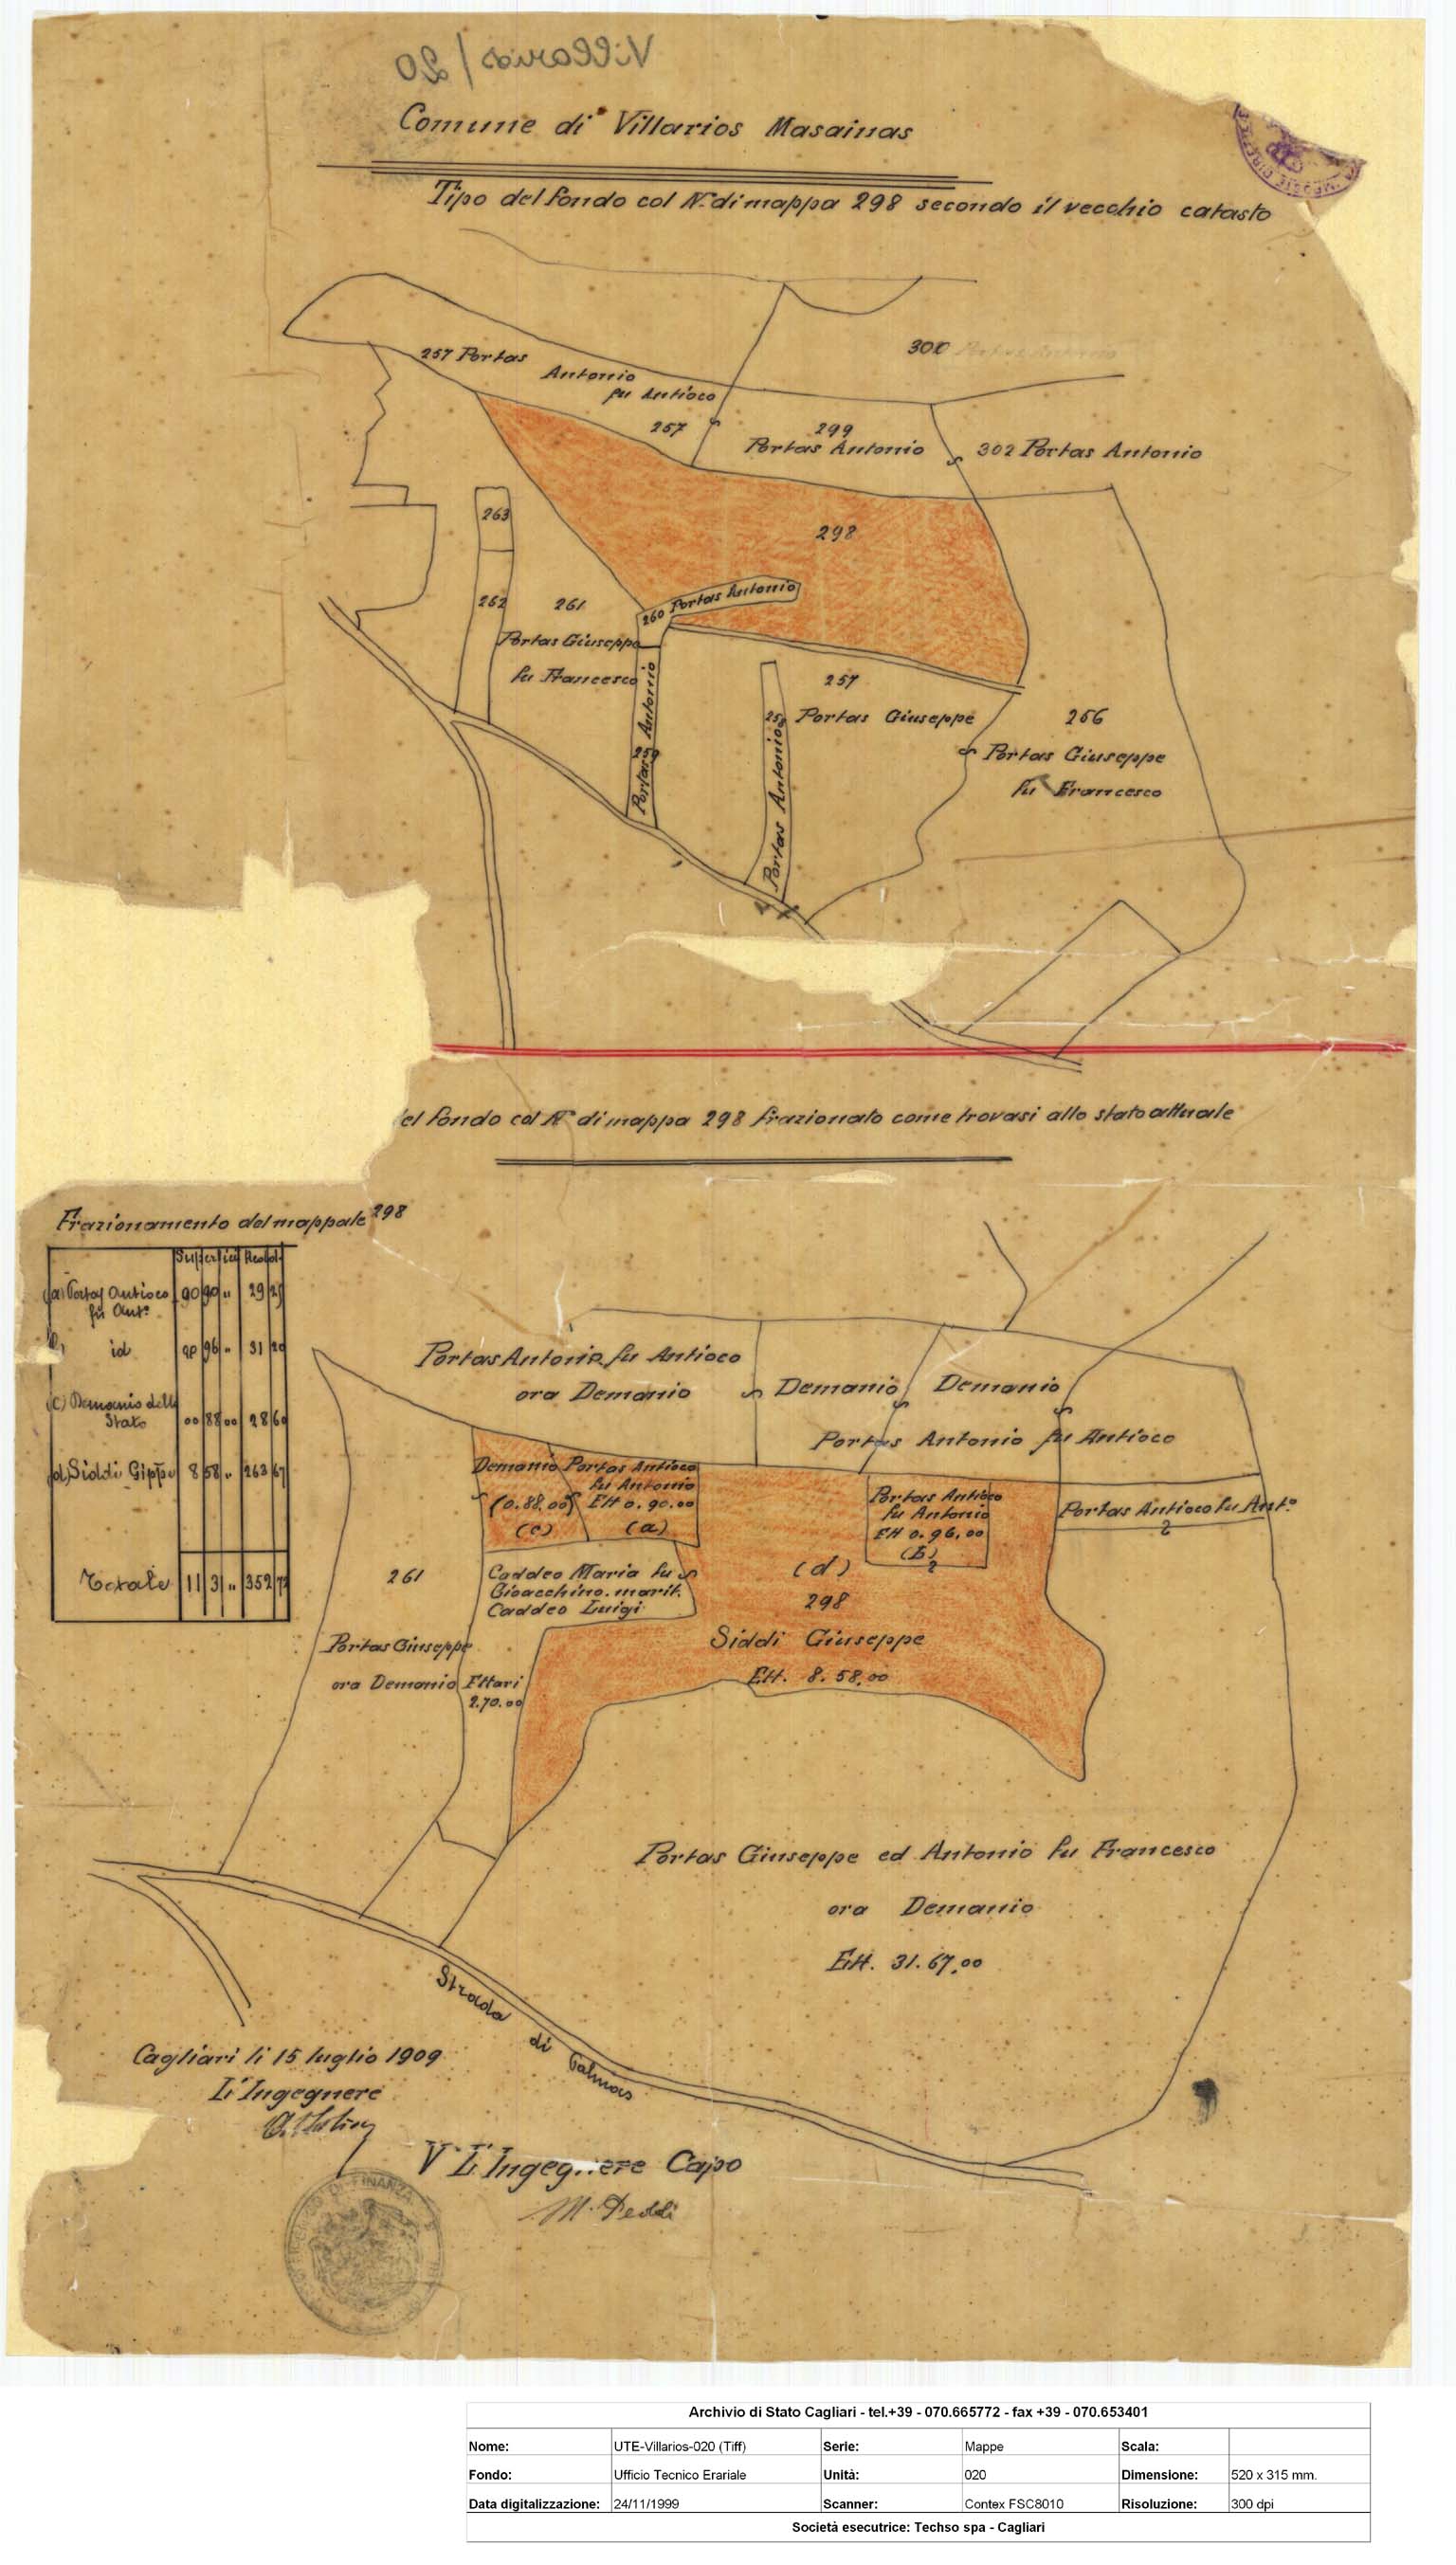 Villarios/20
Comune di Villarios Masainas
Tipo del fondo col N.° di mappa 298 secondo il vecchio catasto
300
257 Portas
Antonio
fu Antioco
257
299
Portas Antonio
302 Portas Antonio
298
263
262
261
Portas Giuseppe
fu Francesco
260 Portas Antonio
259
Portas Antonio
257
Portas Giuseppe
Portas Antonio
256
Portas Giuseppe
fu Francesco
el fondo col N.° di mappa 298 frazionato come trovasi allo stato attuale
Frazionamento del mappale 298
(a) Portas Antioco
fu Ant.°
90 90 „ 29
id 96 „ 31
(c) Demanio dello
Stato
00 88 00 28 60
(d) Siddi Gippe 8 58 „ 263 67
Totale 11 31 „ 352
Portas Antonio fu Antioco
ora Demanio
Demanio
Demanio
Portas Antonio fu Antioco
Demanio
(0.88.00)
(c)
Portas Antioco
fu Antonio
EH 0.90.00
(a)
Portas Antioco
fu Antonio
EH 0.96.00
(b)
Portas Antioco fu Ant.°
261
Caddeo Maria fu
Gioacchino. marit.
Caddeo Luigi
(d)
298
Siddi Giuseppe
EH. 8.58.00
Portas Giuseppe
ora Demanio
Ettari
2.70.00
Portas Giuseppe ed Antonio fu Francesco
ora Demanio
EH. 31.67.00
Strada di
Cagliari li 15 luglio 1909
L'Ingegnere
V L'Ingegnere Capo
DI FINANZA
Archivio di Stato Cagliari - tel.+39 - 070.665772 - fax +39 - 070.653401
Nome: UTE-Villarios-020 (Tiff) Serie: Mappe Scala:
Fondo: Ufficio Tecnico Erariale Unità: 020 Dimensione: 520 x 315 mm.
Data digitalizzazione: 24/11/1999 Scanner: Contex FSC8010 Risoluzione: 300 dpi
Società esecutrice: Techso spa - Cagliari